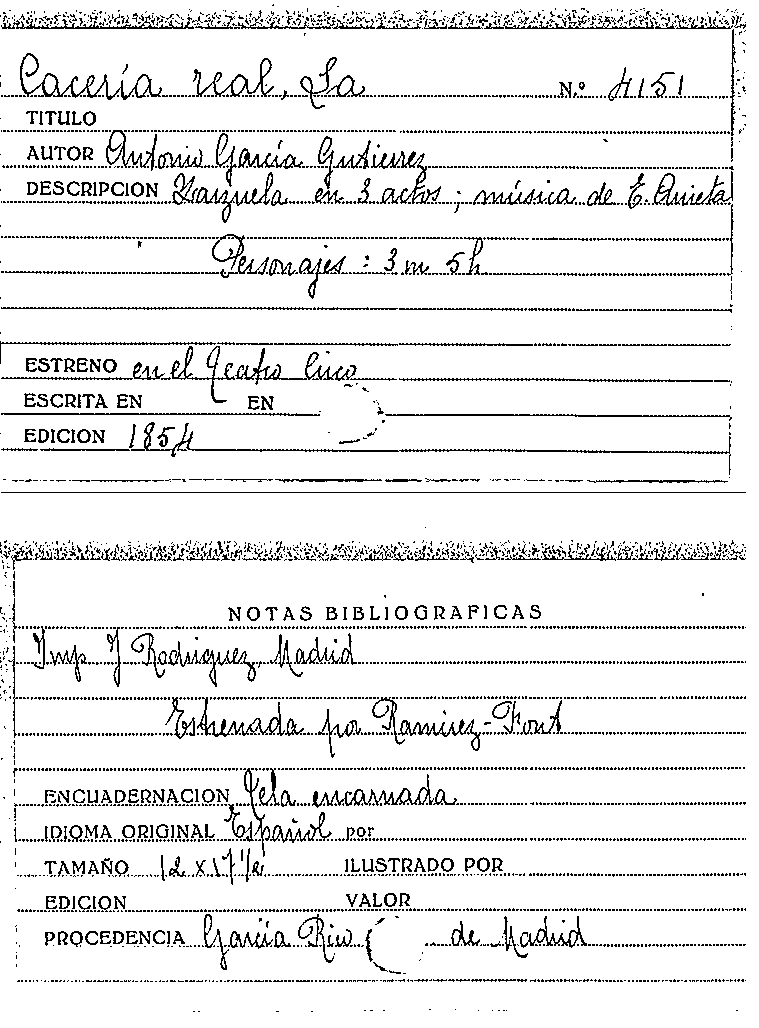 Cacería real, La N.º 4151
TITULO
AUTOR Antonio García Gutierrez
DESCRIPCION Zarzuela en 3 actos; música de E. Arrieta
Personajes: 3 m 5 h
ESTRENO en el Teatro Circo
ESCRITA EN EN
EDICION 1854
NOTAS BIBLIOGRAFICAS
Imp. J Rodriguez, Madrid
Estrenada por Ramirez-Font
ENCUADERNACION Tela encarnada
IDIOMA ORIGINAL Español por
TAMAÑO 12 x 17 1/2 ILUSTRADO POR
EDICION VALOR
PROCEDENCIA García Rico de Madrid